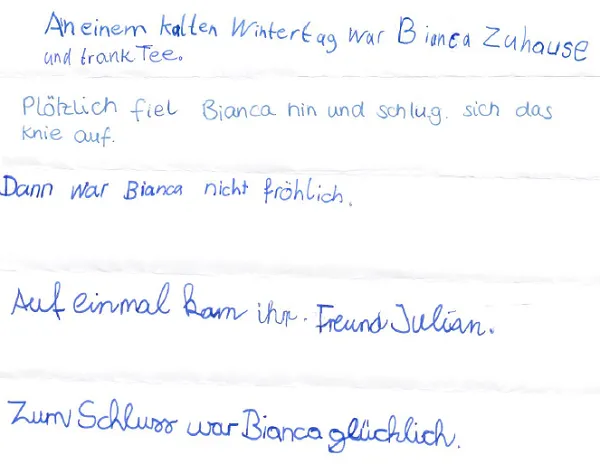 An einem kalten Wintertag war Bianca Zuhause
und trank Tee.
Plötzlich fiel Bianca hin und schlug. sich das
Knie auf.
Dann war Bianca nicht fröhlich.
Auf einmal kam ihr. Freund Julian.
Zum Schluss war Bianca glücklich.